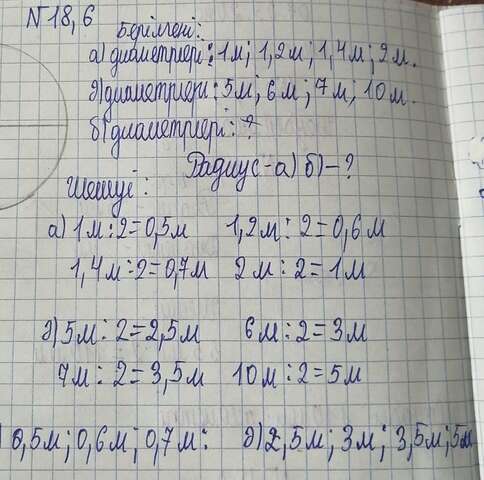 N 18,6
Берілгені:
а) диаметрлері: 1м; 1,2м; 1,4м; 2м.
ә) диаметрлері: 5м; 6м; 7м; 10м.
б) диаметрлері: ?
Радиус-а) б)-?
Шешуі:
а) 1м:2=0,5м 1,2м:2=0,6м
1,4м:2=0,7м 2м:2=1м
ә) 5м:2=2,5м 6м:2=3м
7м:2=3,5м 10м:2=5м
) 0,5м; 0,6м; 0,7м: ә) 2,5м; 3м; 3,5м; 5м